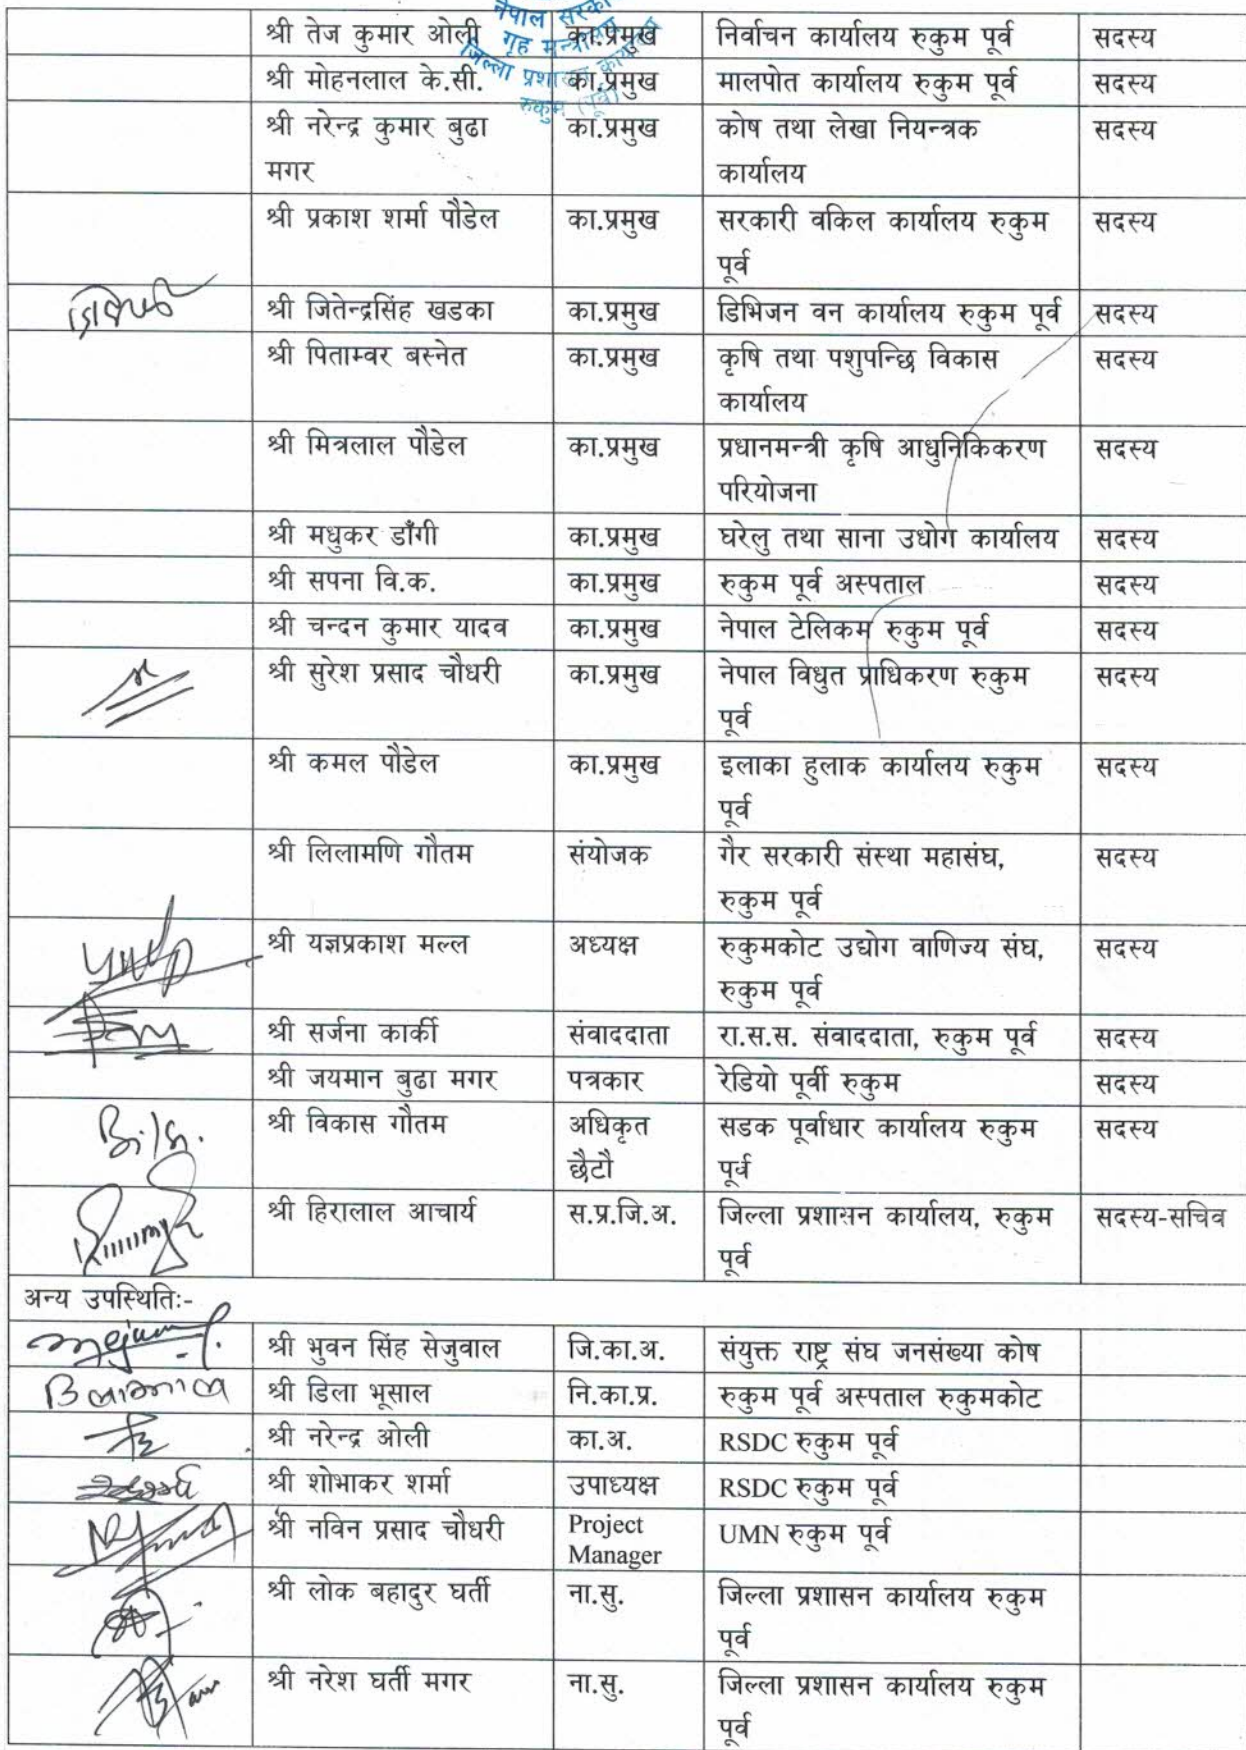 नेपाल सरकार
गृह मन्त्रालय
जिल्ला प्रशासन कार्यालय
रुकुम (पूर्व)
श्री तेज कुमार ओली का.प्रमुख निर्वाचन कार्यालय रुकुम पूर्व सदस्य
श्री मोहनलाल के.सी. का.प्रमुख मालपोत कार्यालय रुकुम पूर्व सदस्य
श्री नरेन्द्र कुमार बुढा का.प्रमुख कोष तथा लेखा नियन्त्रक सदस्य
मगर कार्यालय
श्री प्रकाश शर्मा पौडेल का.प्रमुख सरकारी वकिल कार्यालय रुकुम सदस्य
पूर्व
श्री जितेन्द्रसिंह खडका का.प्रमुख डिभिजन वन कार्यालय रुकुम पूर्व सदस्य
श्री पिताम्वर बस्नेत का.प्रमुख कृषि तथा पशुपन्छि विकास सदस्य
कार्यालय
श्री मित्रलाल पौडेल का.प्रमुख प्रधानमन्त्री कृषि आधुनिकिकरण सदस्य
परियोजना
श्री मधुकर डाँगी का.प्रमुख घरेलु तथा साना उधोग कार्यालय सदस्य
श्री सपना वि.क. का.प्रमुख रुकुम पूर्व अस्पताल सदस्य
श्री चन्दन कुमार यादव का.प्रमुख नेपाल टेलिकम रुकुम पूर्व सदस्य
श्री सुरेश प्रसाद चौधरी का.प्रमुख नेपाल विधुत प्राधिकरण रुकुम सदस्य
पूर्व
श्री कमल पौडेल का.प्रमुख इलाका हुलाक कार्यालय रुकुम सदस्य
पूर्व
श्री लिलामणि गौतम संयोजक गैर सरकारी संस्था महासंघ, सदस्य
रुकुम पूर्व
श्री यज्ञप्रकाश मल्ल अध्यक्ष रुकुमकोट उद्योग वाणिज्य संघ, सदस्य
रुकुम पूर्व
श्री सर्जना कार्की संवाददाता रा.स.स. संवाददाता, रुकुम पूर्व सदस्य
श्री जयमान बुढा मगर पत्रकार रेडियो पूर्वी रुकुम सदस्य
श्री विकास गौतम अधिकृत सडक पूर्वाधार कार्यालय रुकुम सदस्य
छैटौ पूर्व
श्री हिरालाल आचार्य स.प्र.जि.अ. जिल्ला प्रशासन कार्यालय, रुकुम सदस्य-सचिव
पूर्व
अन्य उपस्थितिः-
श्री भुवन सिंह सेजुवाल जि.का.अ. संयुक्त राष्ट्र संघ जनसंख्या कोष
श्री डिला भूसाल नि.का.प्र. रुकुम पूर्व अस्पताल रुकुमकोट
श्री नरेन्द्र ओली का.अ. RSDC रुकुम पूर्व
श्री शोभाकर शर्मा उपाध्यक्ष RSDC रुकुम पूर्व
श्री नविन प्रसाद चौधरी Project UMN रुकुम पूर्व
Manager
श्री लोक बहादुर घर्ती ना.सु. जिल्ला प्रशासन कार्यालय रुकुम
पूर्व
श्री नरेश घर्ती मगर ना.सु. जिल्ला प्रशासन कार्यालय रुकुम
पूर्व